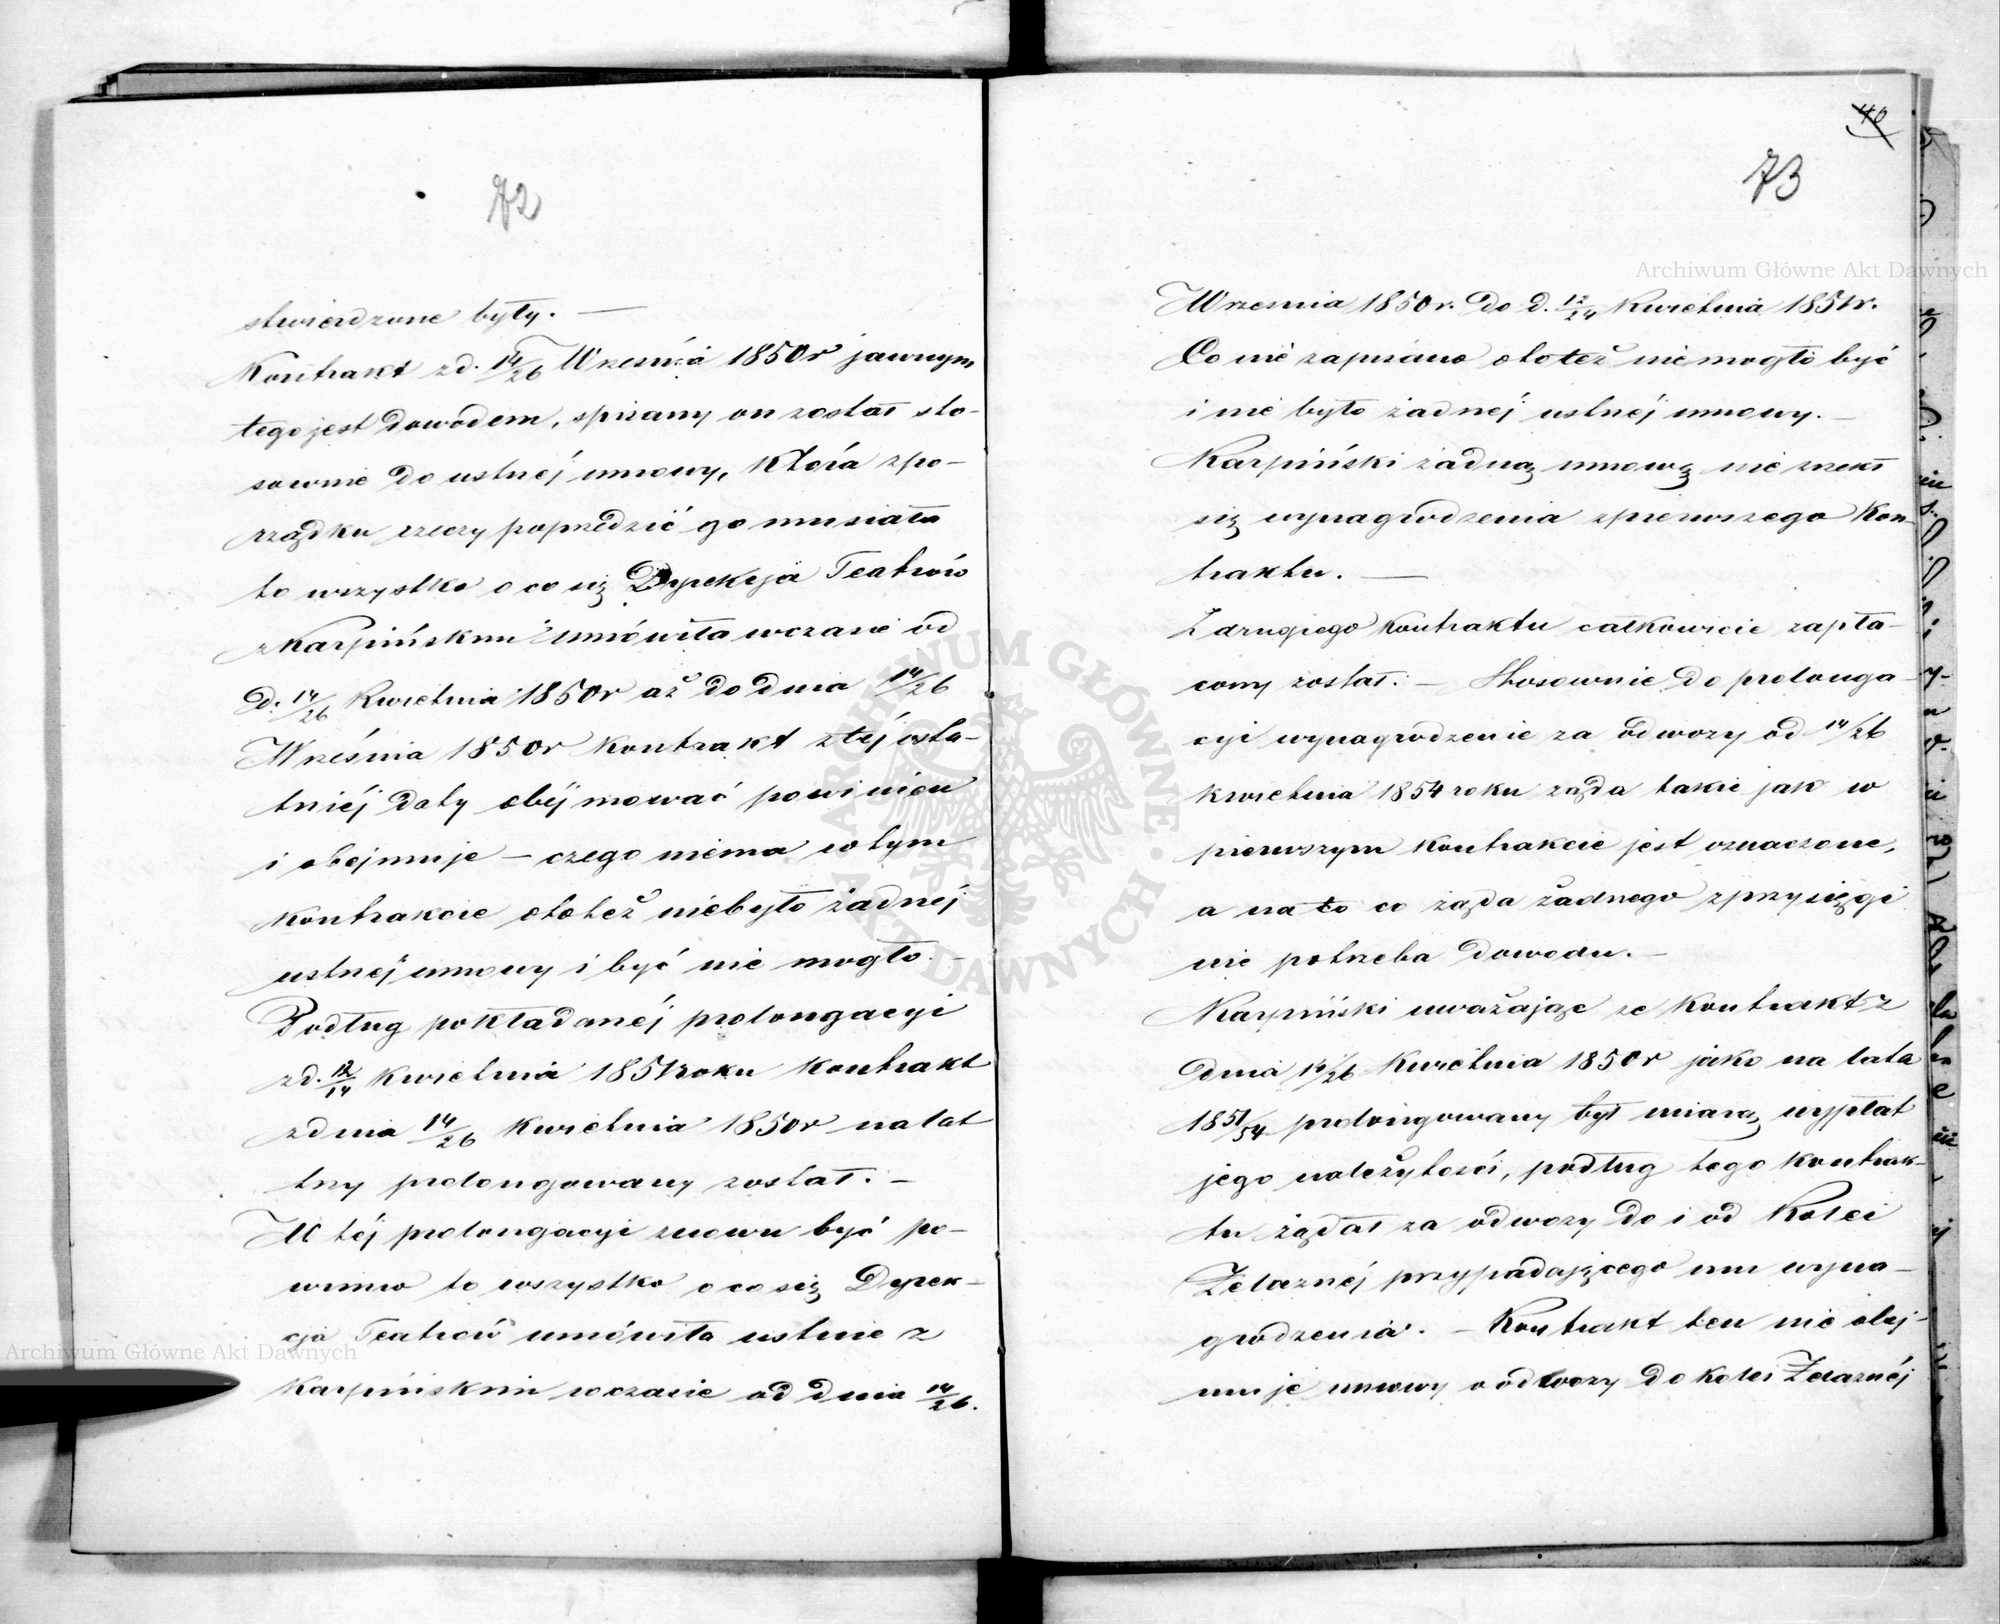 72
stwierdzone były. —
Kontrakt z d. 14/26 Września 1850 r jawnym
tego jest dowodem, spisany on został sto-
sownie do ustnéj umowy, która z po-
rządku rzeczy poprzedzić go musiała
to wszystko o co się Dyrekcja Teatrów
z Karpińskim umówiła w czasie od
d. 14/26 Kwietnia 1850 r aż do dnia 14/26
Września 1850 r kontrakt z téj osta-
tniéj daty obéjmować powinien
i obejmuje – czego niema w tym
kontrakcie otóż też niebyło żadnéj
ustnéj umowy i być nie mogło. –
Podług pokładanéj prolongacyi
z d. 12/14 Kwietnia 1851 roku kontrakt
z dnia 14/26 Kwietnia 1850 r na lat
trzy prolongowany został. –
W téj prolongacyi znowu być po-
winno to wszystko o co się Dyrek-
cja Teatrów umówiła ustnie z
Karpińskim w czasie od dnia 14/26.
40
73
Września 1850 r. do d. 12/24 Kwietnia 1851 r.
Co nie zapisano oto też nie mogło być
i nie było żadnéj ustnéj umowy. –
Karpiński żadną umową nie zrzekł
się wynagrodzenia z pierwszego Kon-
traktu. —
Z drugiego Kontraktu całkowicie zapła-
cony został. – Stosownie do prolonga-
cyi wynagrodzenie za odwozy od 14/26
kwietnia 1854 roku żąda takie jak w
pierwszym kontrakcie jest oznaczone,
a na to co żąda żadnego z przysięgi
nie potrzeba dowodu. –
Karpiński uważając że Kontrakt z
dnia 14/26 Kwietnia 1850 r jako na lata
1851/54 prolongowany był miarą wypłat
jego należytości, podług tego kontrak-
tu żądał za odwozy do i od Kolei
Żelaznéj przypadającego mu wyna-
grodzenia. – Kontrakt ten nie obej-
muje umowy o odwozy do kolei Żelaznéj
Archiwum Główne Akt Dawnych
Archiwum Główne Akt Dawnych
ARCHIWUM GŁÓWNE AKT DAWNYCH